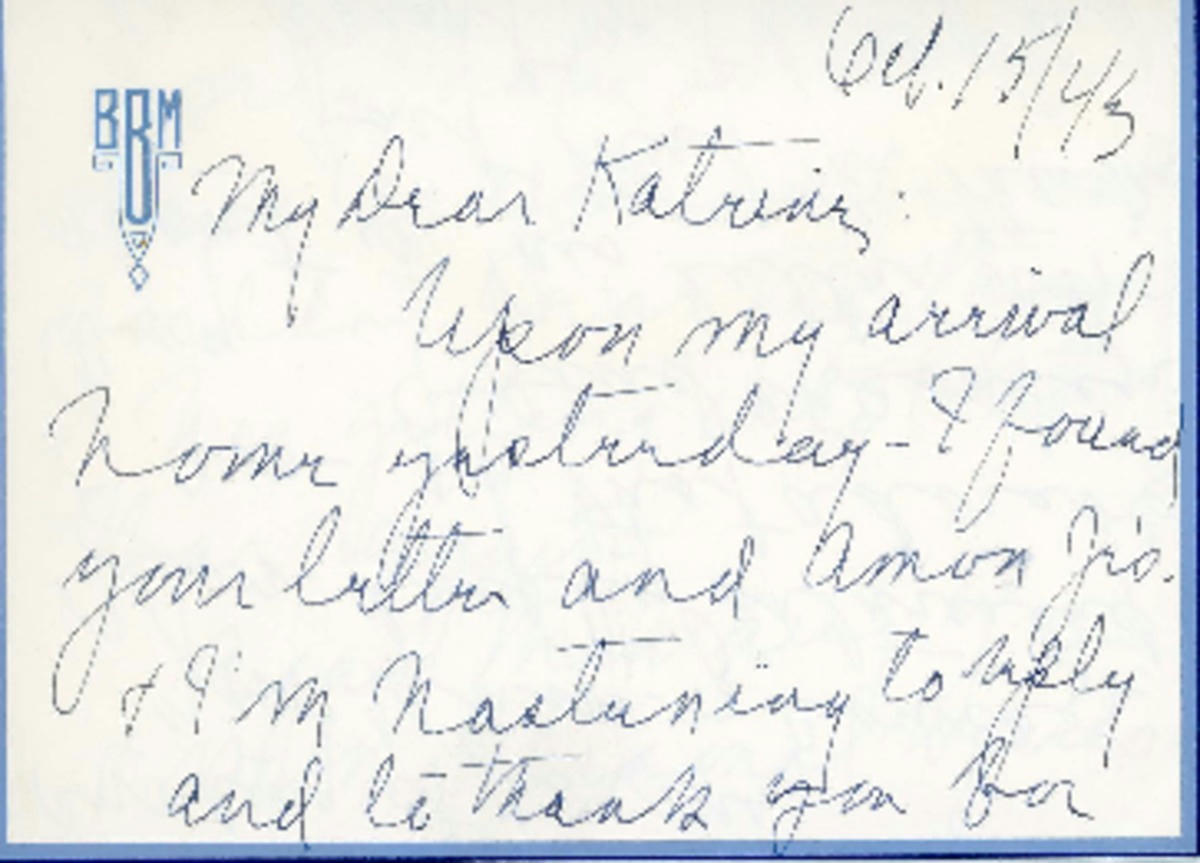 Oct. 15/43
BBM
My Dear Katrine:
Upon my arrival
home yesterday - I found
your letter and Amon Jr's.
& I'm hastening to reply
and to thank you for